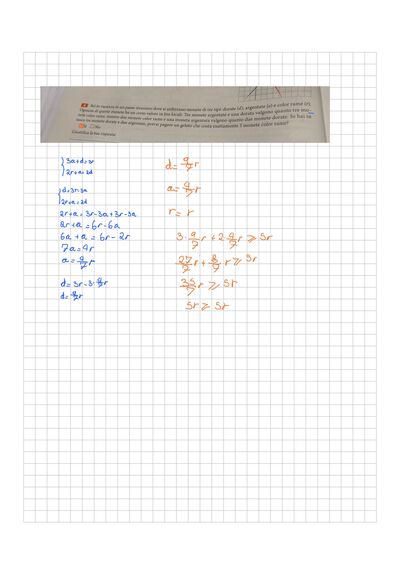 Sei in vacanza in un paese straniero dove si utilizzano monete di tre tipi: dorate (d), argentate (a) e color rame (r).
Ognuna di queste monete ha un certo valore in lire locali. Tre monete argentate e una dorata valgono quanto tre mo-
nete color rame, mentre due monete color rame e una moneta argentata valgono quanto due monete dorate. Se hai in
tasca tre monete dorate e due argentate, potrai pagare un gelato che costa esattamente 5 monete color rame?
Sì No
Giustifica la tua risposta.
3a+d=3r
2r+a=2d
d=3r-3a
2r+a=2d
2r+a=3r-3a+3r-3a
2r+a=6r-6a
6a+a=6r-2r
7a=4r
a=4/7r
d=3r-3·4/7r
d=9/7r
d=9/7r
a=4/7r
r=r
3·9/7r+2·4/7r⩾5r
27/7r+8/7r⩾5r
35/7r⩾5r
5r⩾5r